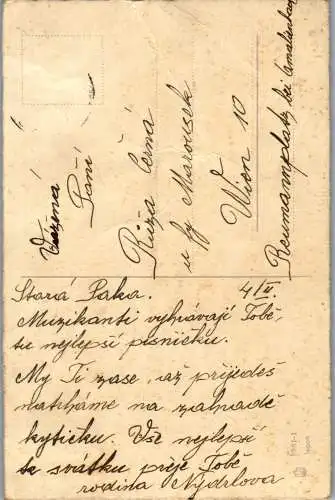 Vážená
Paní
Růža Černá
u fy Maroušek
Wien 10
Reumannplatz bei Amalienbad
Stará Paka. 4/II.
Muzikanti vyhrávají Tobě
tu nejlepší písničku.
My Ti zase, až přijedeš
natrháme na zahradě
kytičku. Vše nejlepší
ke svátku přeje Tobě
rodina Nýdrlova